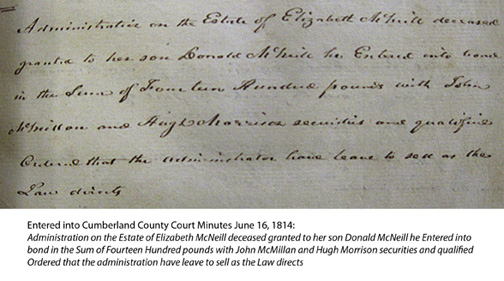 Administration on the Estate of Elizabeth McNeill deceased
granted to her son Donald McNeill he Entered into bond
in the Sum of Fourteen Hundred pounds with John
McMillan and Hugh Morrison securities and qualified
Ordered that the administrator have leave to sell as the
Law directs
Entered into Cumberland County Court Minutes June 16, 1814:
Administration on the Estate of Elizabeth McNeill deceased granted to her son Donald McNeill he Entered into
bond in the Sum of Fourteen Hundred pounds with John McMillan and Hugh Morrison securities and qualified
Ordered that the administration have leave to sell as the Law directs